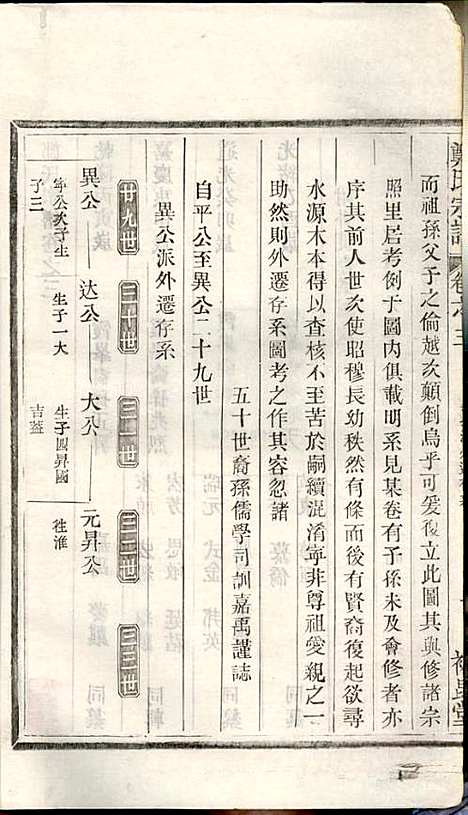 鄭氏宗譜 卷之三
而祖孫父子之倫越次顛倒烏乎可爰復立此圖其與修諸宗
照里居考例于圖內俱載明系見某卷有子孫未及會修者亦
序其前人世次使昭穆長幼秩然有條而後有賢裔復起欲尋
水源木本得以查核不至苦於嗣續混淆寧非尊祖愛親之一
助然則外遷存系圖考之作其容忽諸
五十世裔孫儒學司訓嘉禹謹誌
自平公至異公二十九世
異公派外遷存系
廿九世 三十世 三一世 三二世 三三世
異公 达公 大公 元昇公
寧公次子生子三
生子一大
生子四昇國吉益
徃淮